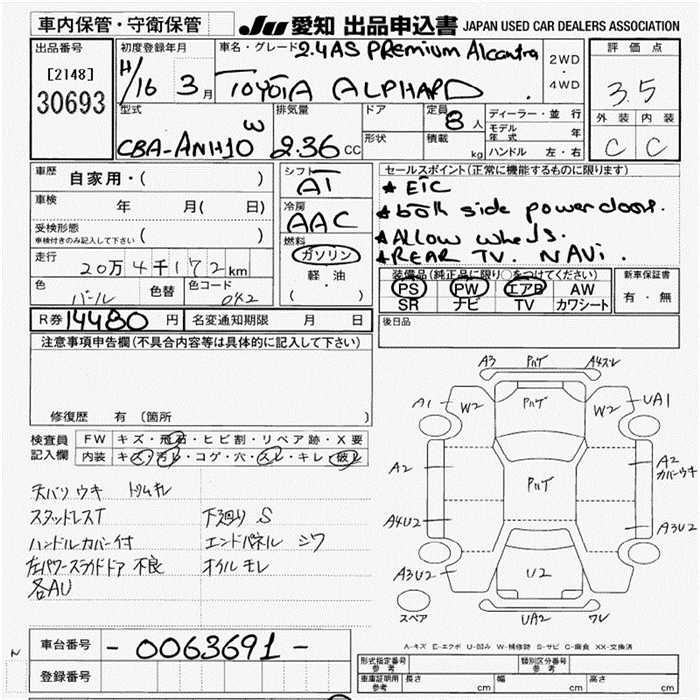 車内保管・守衛保管
JU 愛知 出品申込書 JAPAN USED CAR DEALERS ASSOCIATION
出品番号
[2148]
30693
初度登録年月
H/16 3月
車名・グレード 2.4AS PREMIUM Alcantra
TOYOTA ALPHARD
2WD
・
4WD
評価点
3.5
外装 内装
C C
型式
CBA-ANH10W
排気量
2.36cc
ドア
形状
定員 8人
積載 kg
ディーラー・並行
モデル年式 年
ハンドル 左・右
車歴 自家用・( )
車検 年 月( 日)
受検形態
車検付きのみ記入して下さい ( )
走行 20万4千172km
色 パール 色替 色コード 042
シフト
AT
冷房
AAC
燃料
ガソリン
軽・油
( )
セールスポイント(正常に機能するものに限ります)
★ ETC
★ both side power doors.
★ Allow wheels.
★ REAR TV. NAVi
装備品(純正品に限り○をつけてください)
PS PW エアB AW
SR ナビ TV カワシート
新車保証書
有・無
R券 14480 円 名変通知期限 月 日
後日品
注意事項申告欄(不具合内容等は具体的に記入して下さい)
修復歴 有(箇所
検査員記入欄
FW キズ・飛石・ヒビ割・リペア跡・X要
内装 キズ・汚レ・コゲ・穴・スレ・キレ・破レ
天バリ ウキ トリムキレ
スタットレスT 下廻り S
ハンドルカバー付 エンドパネル シワ
左パワースライドドア 不良 オイルモレ
各AU
A3 A4スレ
A1 W2 W2 UA1
A2 A2 カバーウキ
A4U2 A3U2
A3U2 U2
スペア UA2 ワレ
A-キズ E-エクボ U-凹み W-補修跡 S-サビ C-腐食 XX-交換済
車台番号 - 0063691 -
登録番号
形式指定番号 参考
類別区分番号 参考
車庫証明用 参考 長さ cm 幅 cm 高さ cm